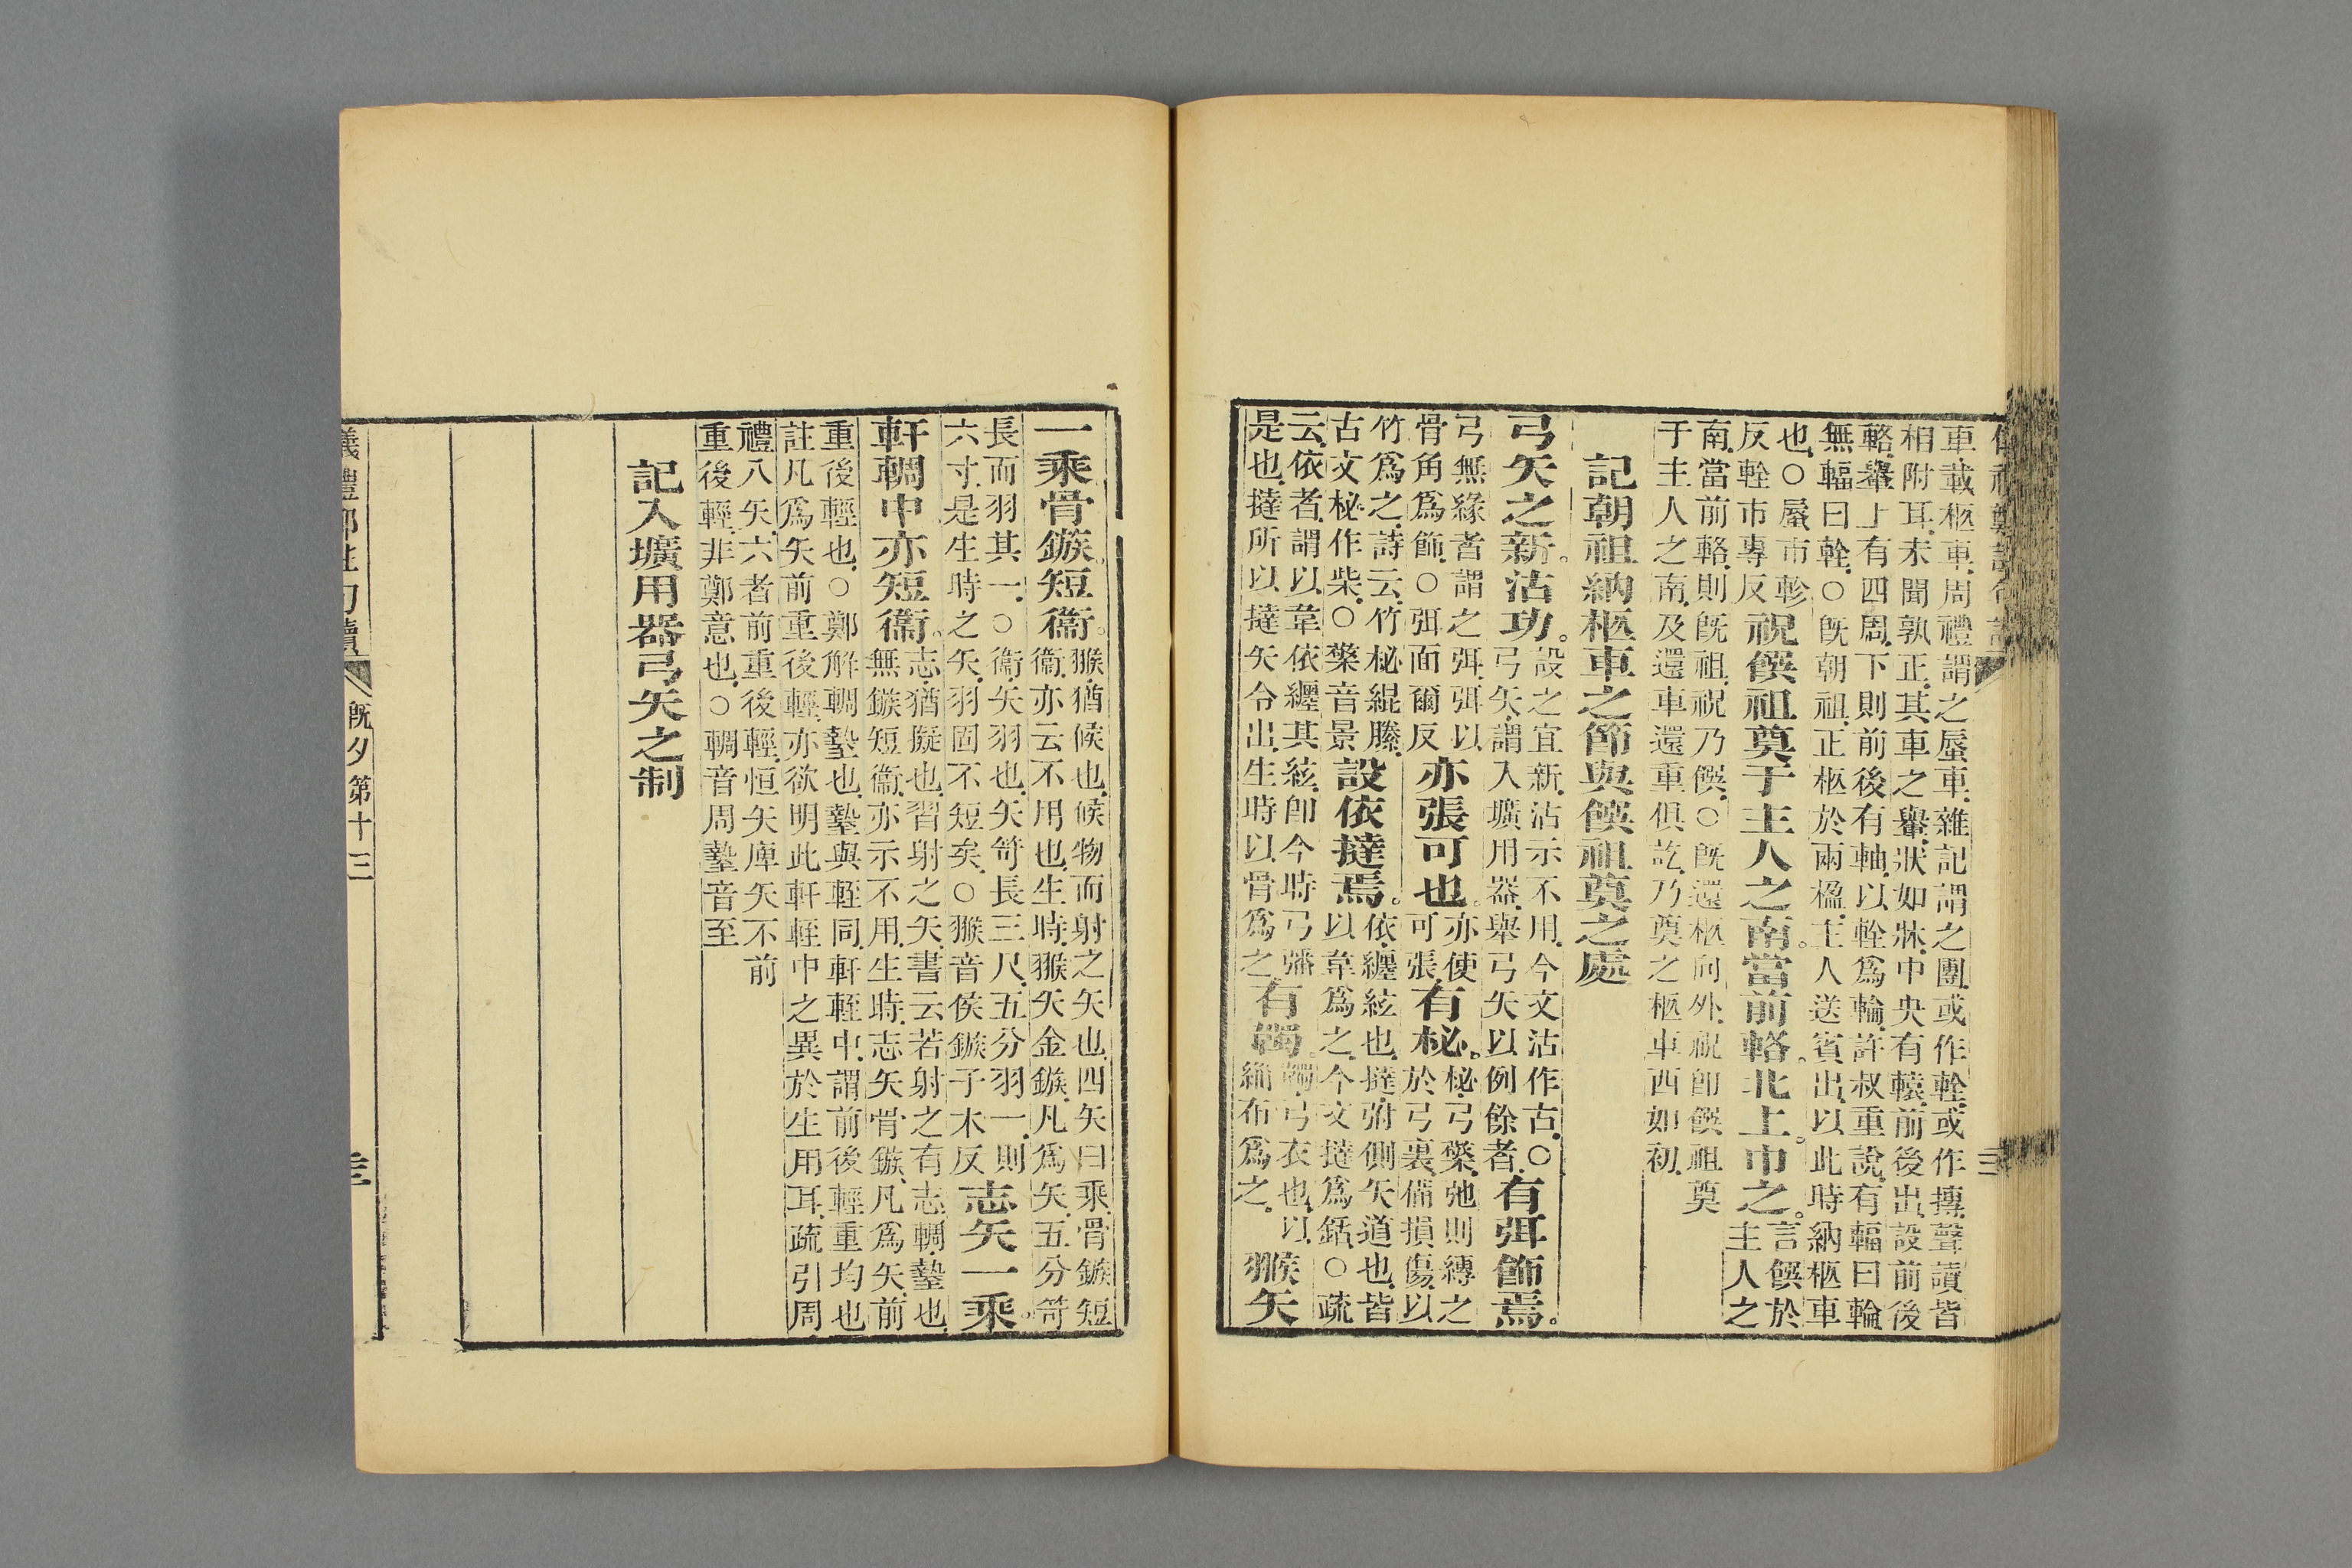 車載柩車周禮謂之蜃車雜記謂之團或作輇或作摶聲讀皆
相附耳未聞孰正其車之轝狀如牀中央有轅前後出設前後
輅轝上有四周下則前後有軸以輇爲輪許叔重說有輻曰輪
無輻曰輇○旣朝祖正柩於兩楹主人送賓出以此時納柩車
也○蜃市軫
反輇市專反
祝饌祖奠于主人之南當前輅北上巾之
言饌於
主人之
南當前輅則旣祖祝乃饌○旣還柩向外祝卽饌祖奠
于主人之南及還車還重俱訖乃奠之柩車西如初
記朝祖納柩車之節與饌祖奠之處
弓矢之新沽功
設之宜新沽示不用今文沽作古○
弓矢謂入壙用器舉弓矢以例餘者
有弭飾焉
弓無緣者謂之弭弭以
骨角爲飾○弭面爾反
亦張可也
亦使
可張
有柲
柲弓檠弛則縛之
於弓裏備損傷以
竹爲之詩云竹柲緄縢
古文柲作柴○檠音景
設依撻焉
依纏絃也撻弣側矢道也皆
以韋爲之今文撻爲銛○疏
云依者謂以韋依纏其絃卽今時弓𢐀
是也撻所以撻矢令出生時以骨爲之
有韣
韣弓衣也以
緇布爲之
猴矢
一乘骨鏃短衞
猴猶候也候物而射之矢也四矢曰乘骨鏃短
衞亦云不用也生時猴矢金鏃凡爲矢五分笴
長而羽其一○衞矢羽也矢笴長三尺五分羽一則
六寸是生時之矢羽固不短矣○猴音侯鏃子木反
志矢一乘
軒輖中亦短衞
志猶擬也習射之矢書云若射之有志輖墊也
無鏃短衞亦示不用生時志矢骨鏃凡爲矢前
重後輕也○鄭解輖墊也墊與輊同軒輊中謂前後輕重均也
註凡爲矢前重後輕亦欲明此軒輊中之異於生用耳疏引周
禮八矢六者前重後輕恒矢庳矢不前
重後輕非鄭意也○輖音周墊音至
記入壙用器弓矢之制
儀禮鄭註句讀
旣夕第十三